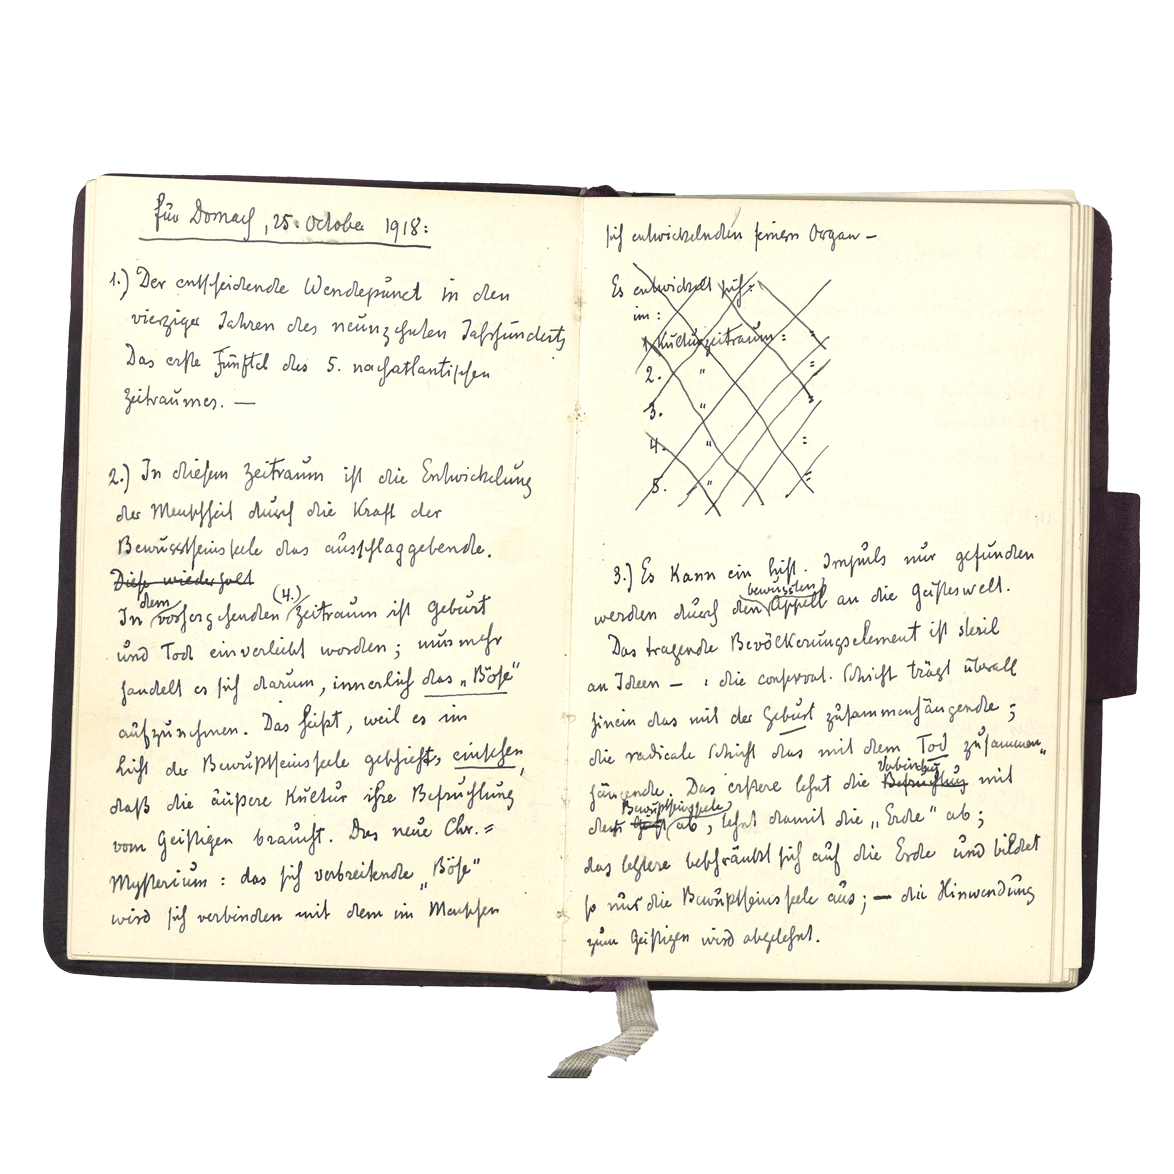 Für Dornach, 25. October 1918:
1.) Der entscheidende Wendepunct in den
vierziger Jahren des neunzehnten Jahrhunderts
Das erste Fünftel des 5. nachatlantischen
Zeitraumes. —
2.) In diesem Zeitraum ist die Entwickelung
der Menschheit durch die Kraft der
Bewusstseinsseele das ausschlaggebende.
Diese wiederholt
dem (4.)
In vorhergehenden Zeitraum ist Geburt
und Tod einverleibt worden; nunmehr
handelt es sich darum, innerlich das „Böse“
aufzunehmen. Das heißt, weil es im
Licht der Bewußtseinsseele geschieht, einsehen,
daß die äußere Kultur ihre Befruchtung
vom Geistigen braucht. Das neue Chr.=
Mysterium: das sich verbreitende „Böse“
wird sich verbinden mit dem im Menschen
sich entwickelnden feinern Organ —
Es entwickelt sich:
im:
1. Kulturzeitraum:
2. "
3. "
4. "
5. "
3.) Es kann ein hist. Impuls nur gefunden
bewussten
werden durch den Appell an die Geisteswelt.
Das tragende Bevölkerungselement ist steril
an Ideen — : die conservat. Schicht trägt überall
hinein das mit der Geburt zusammenhängende;
die radicale Schicht das mit dem Tod zusammen„
Verbindung
hängende. Das erstere lehnt die Befruchtung mit
Bewußtseinsseele
der Geist ab, lehnt damit die „Erde“ ab;
das letztere beschränkt sich auf die Erde und bildet
so nur die Bewußtseinsseele aus; — die Hinwendung
zum Geistigen wird abgelehnt.